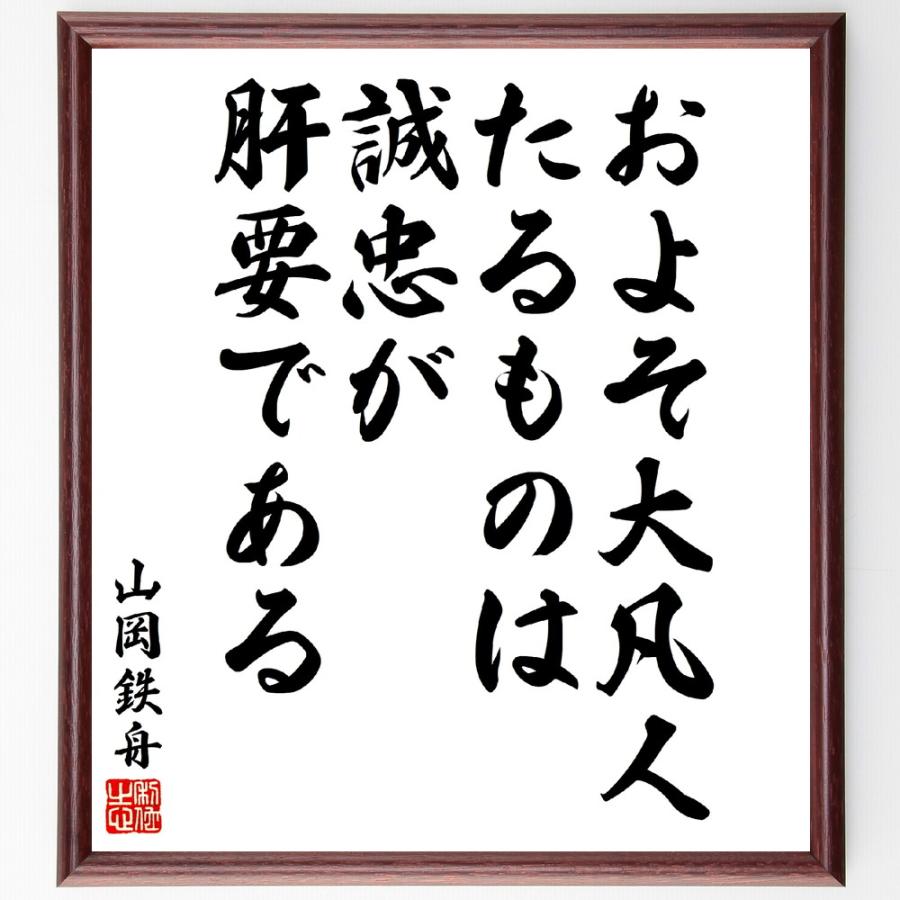 およそ大凡人
たるものは
誠忠が
肝要である
山岡鉄舟